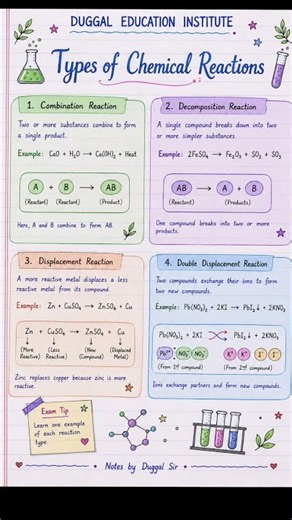 DUGGAL EDUCATION INSTITUTE
Types of Chemical Reactions
1. Combination Reaction
Two or more substances combine to form
a single product.
Example: CaO + H₂O → Ca(OH)₂ + Heat
A + B → AB
(Reactant) (Reactant) (Product)
Here, A and B combine to form AB.
2. Decomposition Reaction
A single compound breaks down into two
or more simpler substances.
Example: 2FeSO₄ → Fe₂O₃ + SO₂ + SO₃
AB → A + B
(Reactant) (Products)
One compound breaks into two or more
products.
3. Displacement Reaction
A more reactive metal displaces a less
reactive metal from its compound.
Example: Zn + CuSO₄ → ZnSO₄ + Cu
Zn + CuSO₄ → ZnSO₄ + Cu
↓ ↓ ↓ ↓
(More (Less (New (Displaced
Reactive) Reactive) Compound) Metal)
Zinc replaces copper because zinc is more
reactive.
4. Double Displacement Reaction
Two compounds exchange their ions to form
two new compounds.
Example: Pb(NO₃)₂ + 2KI → PbI₂↓ + 2KNO₃
Pb(NO₃)₂ + 2KI PbI₂↓ + 2KNO₃
Pb²⁺ NO₃⁻ NO₃⁻ K⁺ K⁺ I⁻ I⁻
(From 1st compound) (From 2nd compound)
Ions exchange partners and form new compounds.
Exam Tip
Learn one example
of each reaction
type.
Notes by Duggal Sir